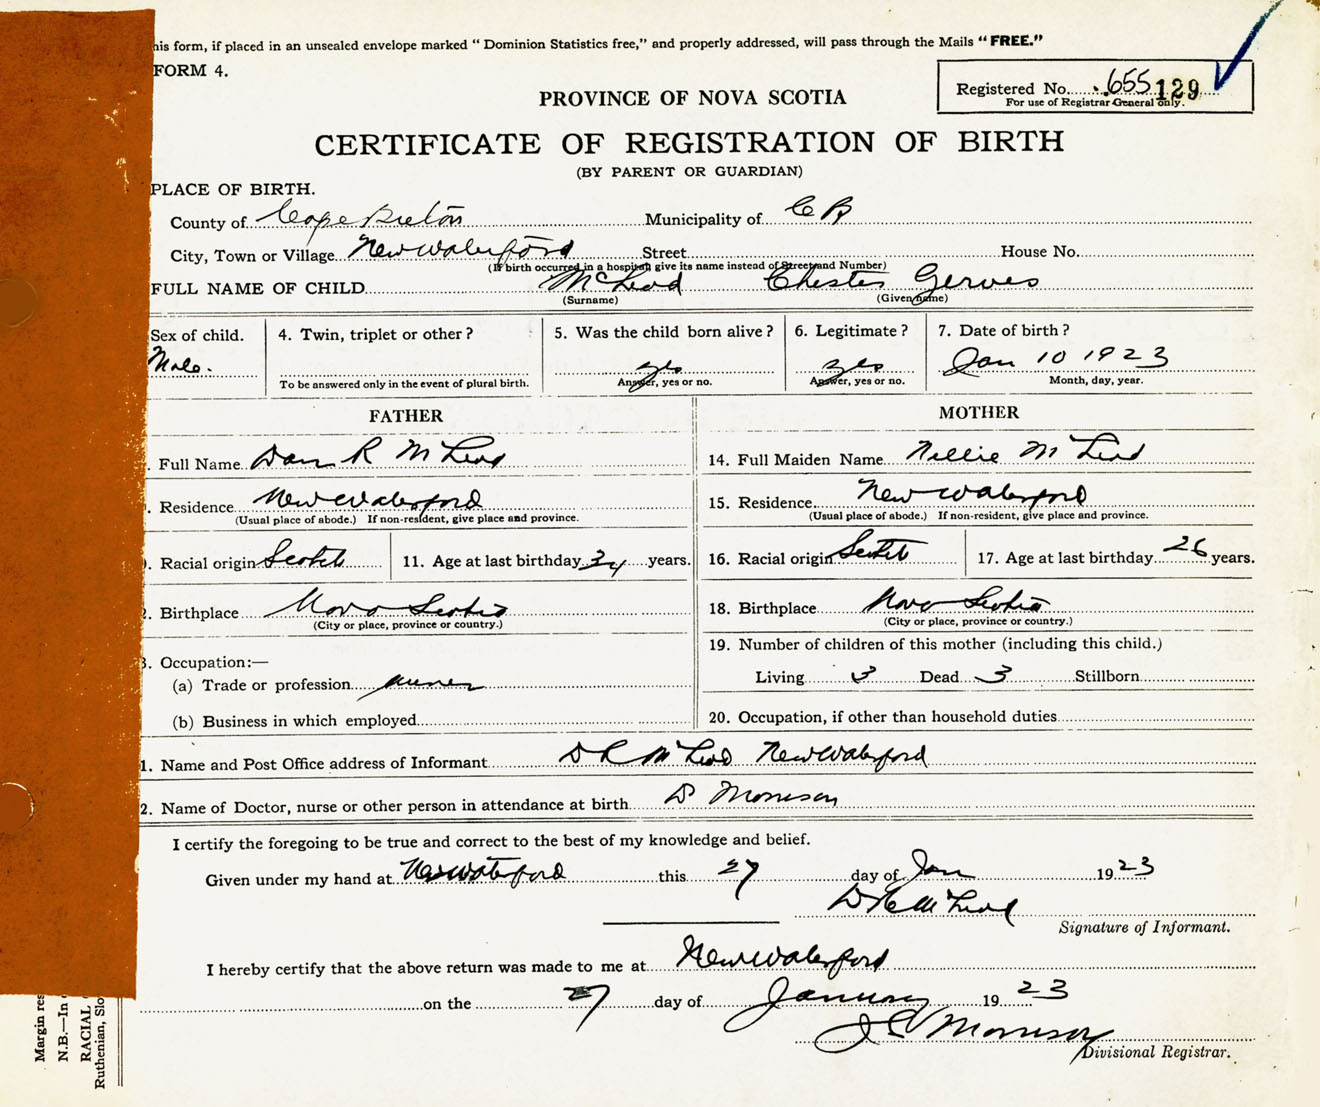 his form, if placed in an unsealed envelope marked "Dominion Statistics free," and properly addressed, will pass through the Mails "FREE."
FORM 4.
Registered No. 655 129
For use of Registrar General only.
PROVINCE OF NOVA SCOTIA
CERTIFICATE OF REGISTRATION OF BIRTH
(BY PARENT OR GUARDIAN)
PLACE OF BIRTH.
County of Cape Breton Municipality of C B
City, Town or Village New Waterford Street House No.
(If birth occurred in a hospital, give its name instead of Street and Number)
FULL NAME OF CHILD McLeod Chester
(Surname) (Given name)
Sex of child. 4. Twin, triplet or other? 5. Was the child born alive? 6. Legitimate? 7. Date of birth?
Male. yes yes Jan 10 1923
To be answered only in the event of plural birth. Answer, yes or no. Answer, yes or no. Month, day, year.
FATHER MOTHER
. Full Name Dan R McLeod 14. Full Maiden Name Nellie McLeod
. Residence New Waterford 15. Residence New Waterford
(Usual place of abode.) If non-resident, give place and province. (Usual place of abode.) If non-resident, give place and province.
. Racial origin Scotch 11. Age at last birthday 34 years. 16. Racial origin Scotch 17. Age at last birthday 26 years.
. Birthplace Nova Scotia 18. Birthplace Nova Scotia
(City or place, province or country.) (City or place, province or country.)
3. Occupation:— 19. Number of children of this mother (including this child.)
(a) Trade or profession miner Living 3 Dead 3 Stillborn
(b) Business in which employed 20. Occupation, if other than household duties
1. Name and Post Office address of Informant D R McLeod New Waterford
2. Name of Doctor, nurse or other person in attendance at birth Morrison
I certify the foregoing to be true and correct to the best of my knowledge and belief.
Given under my hand at New Waterford this 27 day of Jan 1923
D R McLeod
Signature of Informant.
I hereby certify that the above return was made to me at New Waterford
on the 27 day of January 1923
Morrison
Divisional Registrar.
Margin res
N.B.—In
RACIAL
Ruthenian, Slo